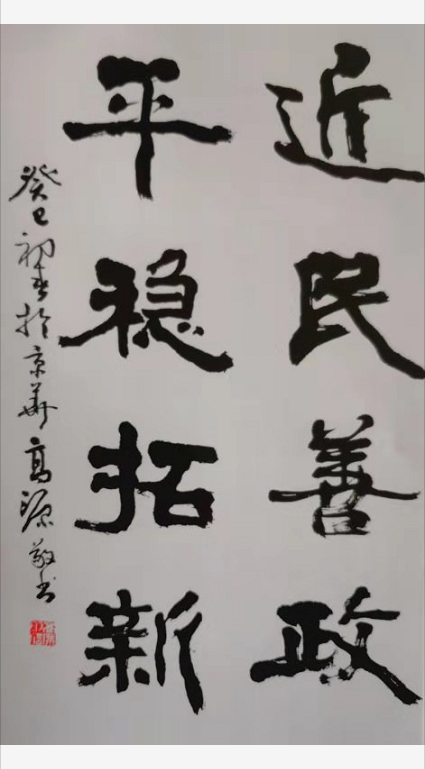 近民善政
平稳拓新
癸巳初春于京华高源敬书